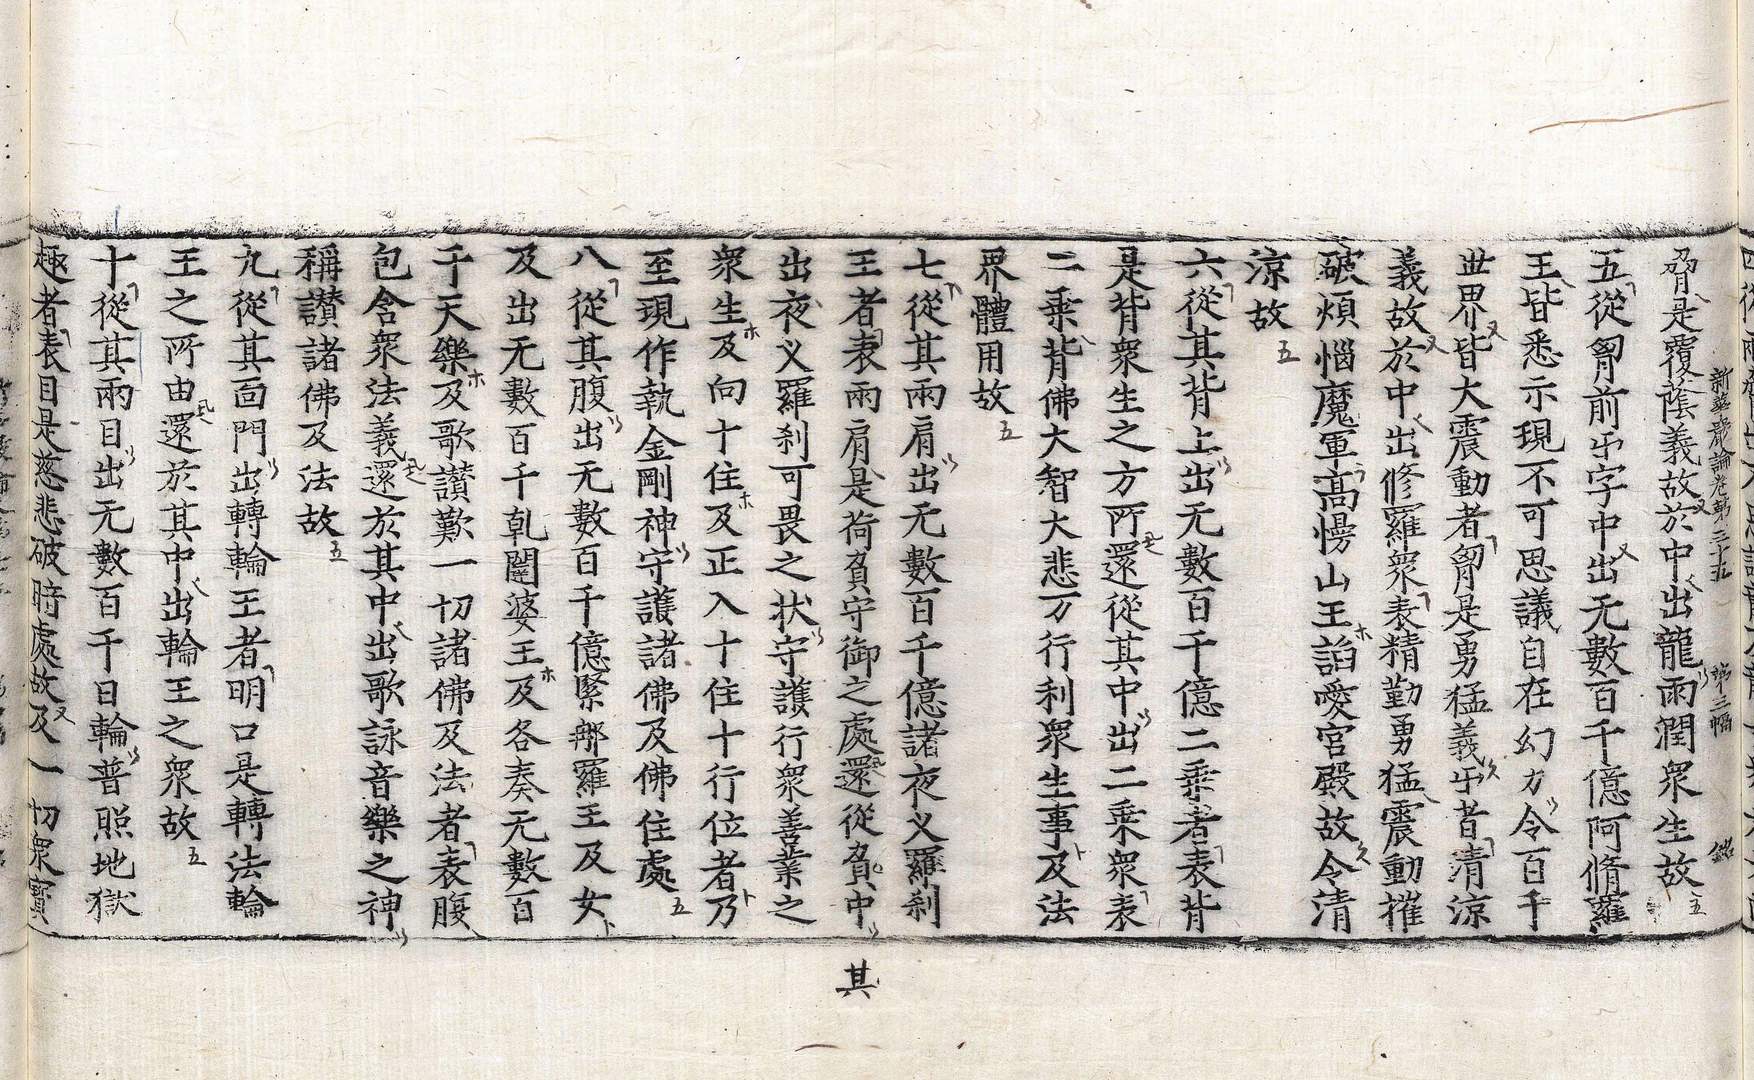 脅是覆蔭義故於中出龍雨潤衆生故
五從胷前卍字中出无數百千億阿脩羅
王皆悉示現不可思議自在幻力令百千
世界皆大震動者胷是勇猛義卍者清涼
義故於中出修羅衆表精勤勇猛震動摧
破煩惱魔軍髙慢山王諂愛宮殿故令清
涼故
六從其背上出无數百千億二乗者表背
是背衆生之方所還從其中出二乗衆表
二乗背佛大智大悲万行利衆生事及法
界體用故
七從其兩肩出无數百千億諸夜义羅刹
王者表兩肩是荷負守御之處還從負中
出夜义羅刹可畏之状守護行衆善業之
衆生及向十住及正入十住十行位者乃
至現作執金剛神守護諸佛及佛住處
八從其腹出无數百千億緊那羅王及女
及出无數百千乹闥婆王及各奏无數百
千天樂及歌讃歎一切諸佛及法者表腹
包含衆法義還於其中出歌詠音樂之神
稱讃諸佛及法故
九從其面門出轉輪王者明口是轉法輪
王之所由還於其中出輪王之衆故
十從其兩目出无數百千日輪普照地獄
趣者表目是慈悲破暗處故及一切衆寳
新華嚴論卷第三十五 第三幅 銘
其